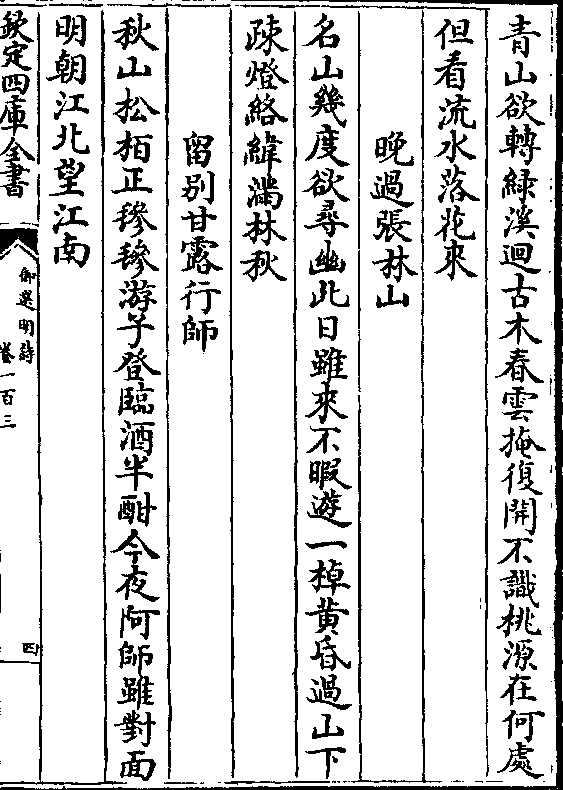 青山欲轉緑溪迴古木春雲掩復開不識桃源在何處
但看流水落花來
晚過張林山
名山幾度欲尋幽此日雖來不暇遊一棹黄昏過山下
疎燈絡緯滿林秋
留别甘露行師
秋山松栢正毿毿游子登臨酒半酣今夜阿師雖對面
明朝江北望江南
欽定四庫全書
御選明詩
卷一百三
四